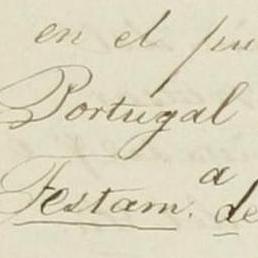 en el
Portugal
Testam.ª de